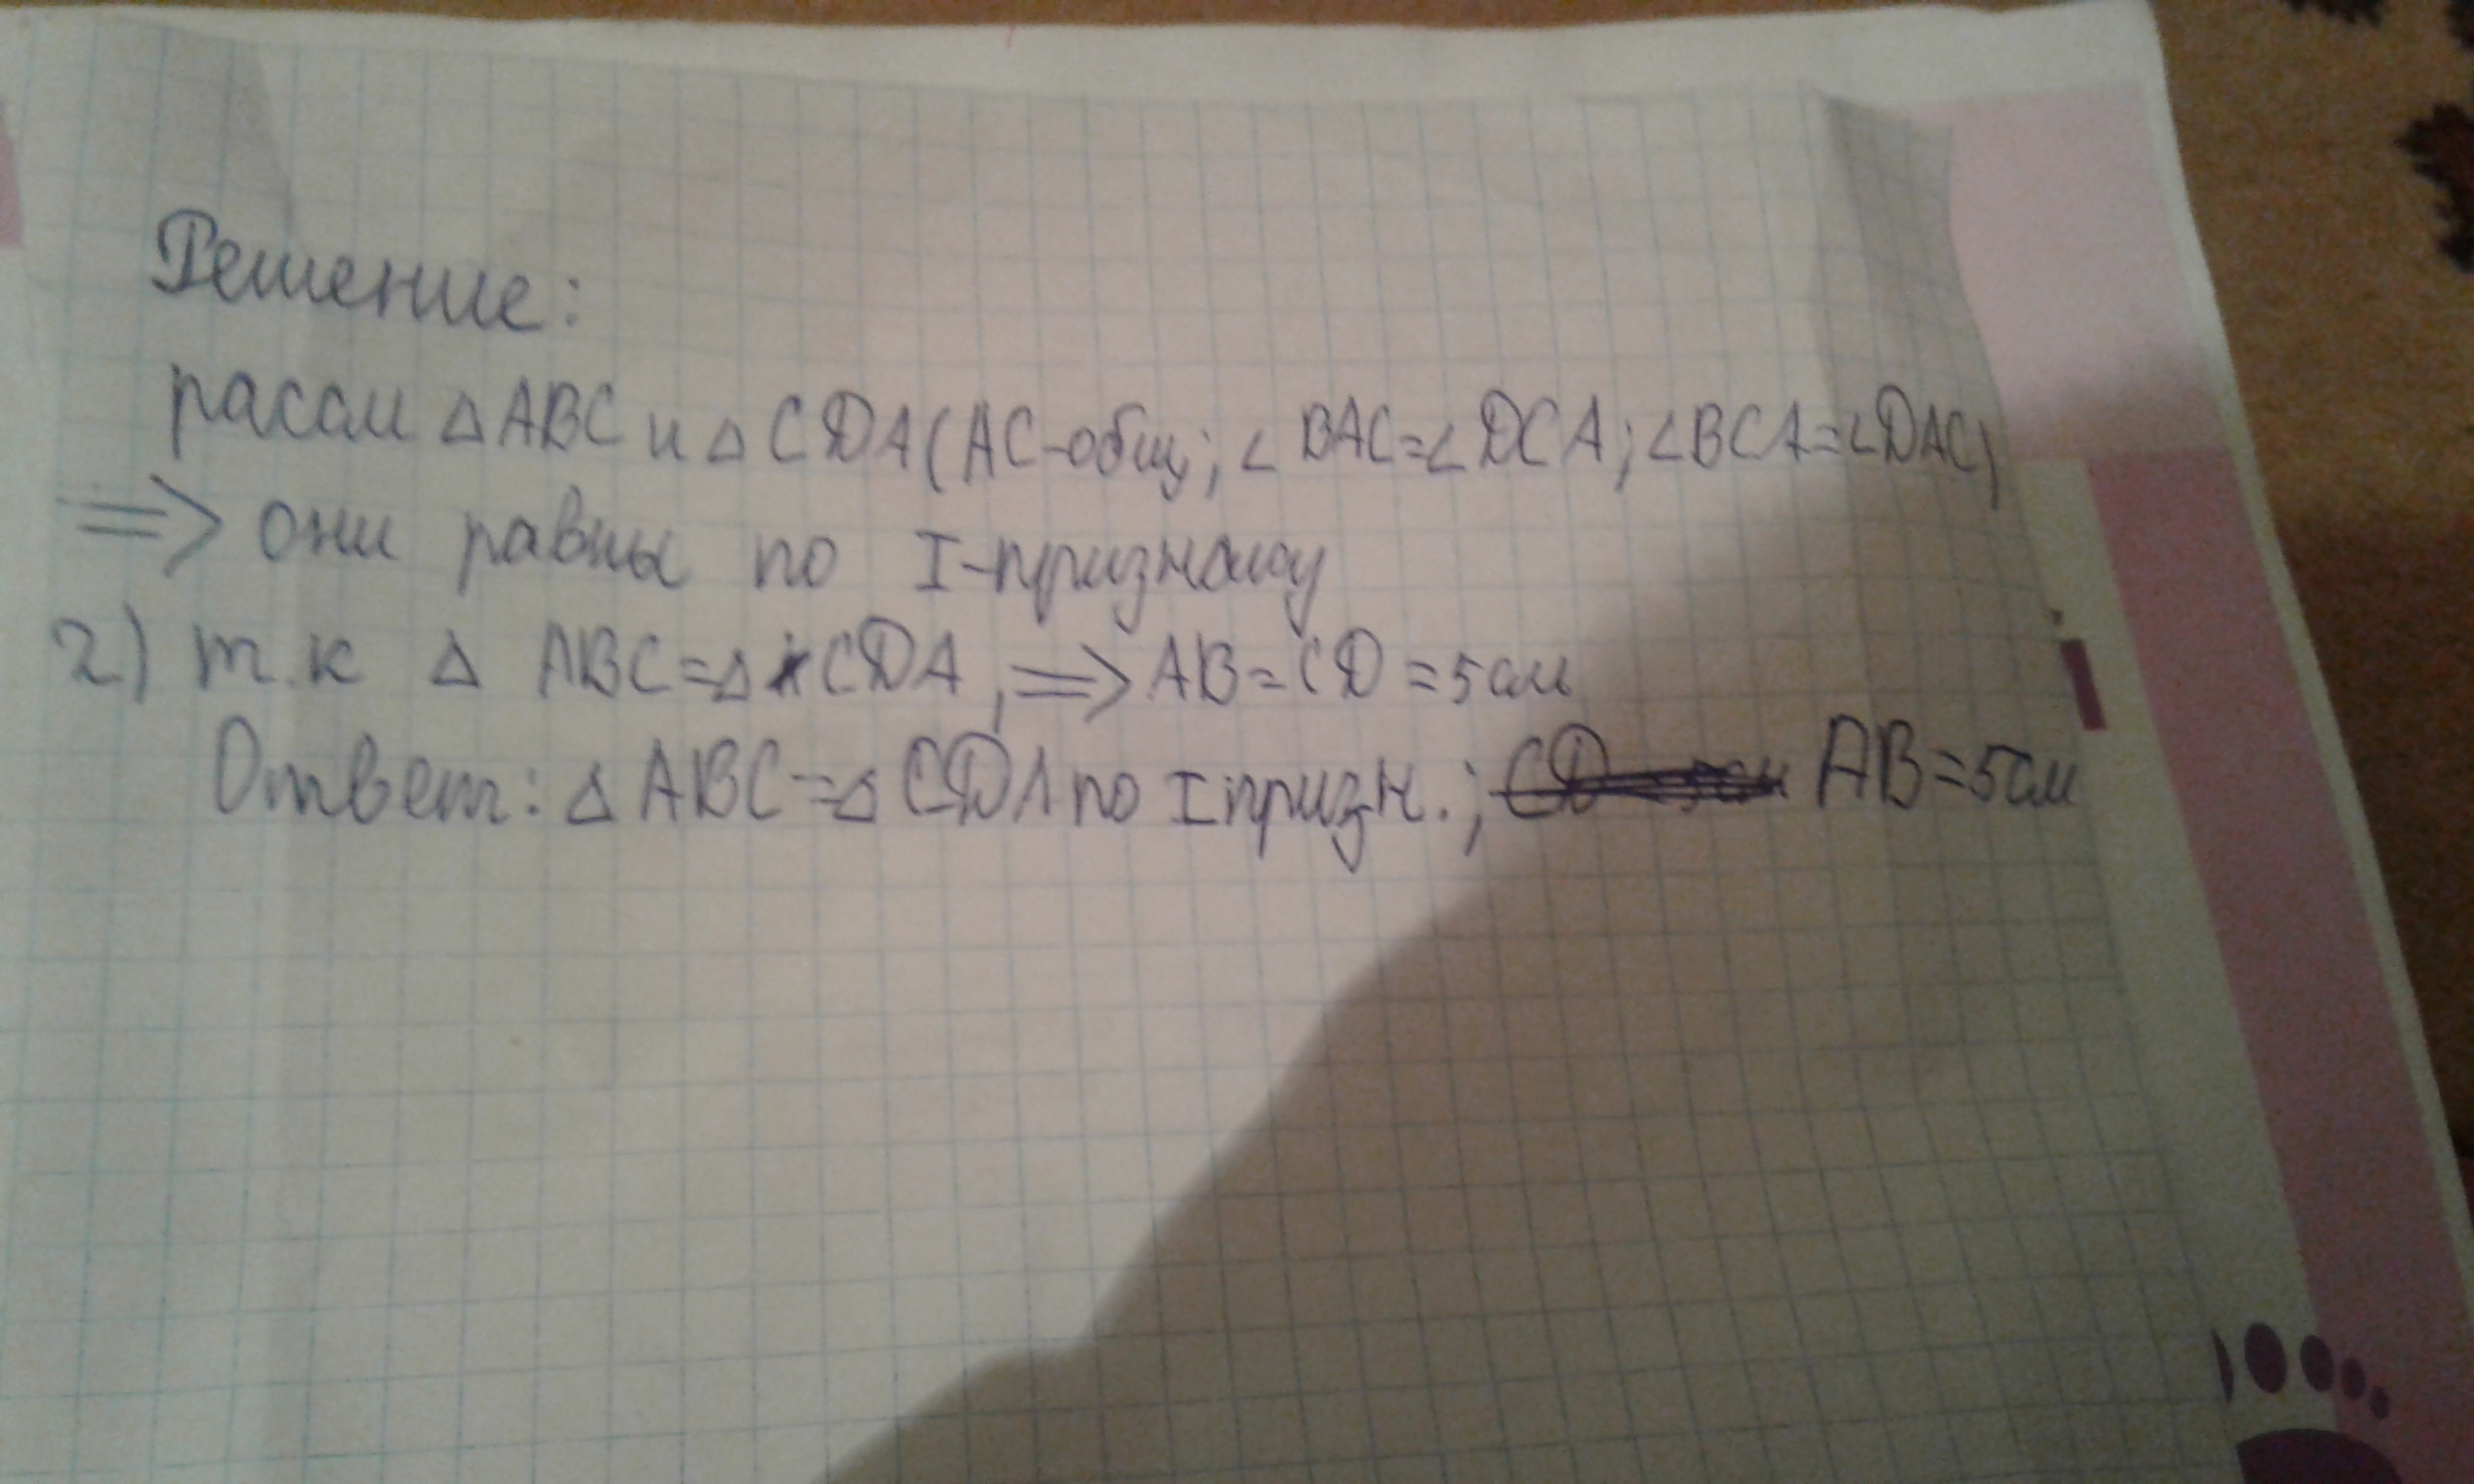 Решение:
рассм △ABC и △CDA(AC-общ; ∠BAC=∠DCA; ∠BCA=∠DAC)
=> они равны по I-признаку
2) т.к △ ABC=△ CDA, => AB=CD=5см
Ответ: △ABC=△CDA по I призн.; AB=5см